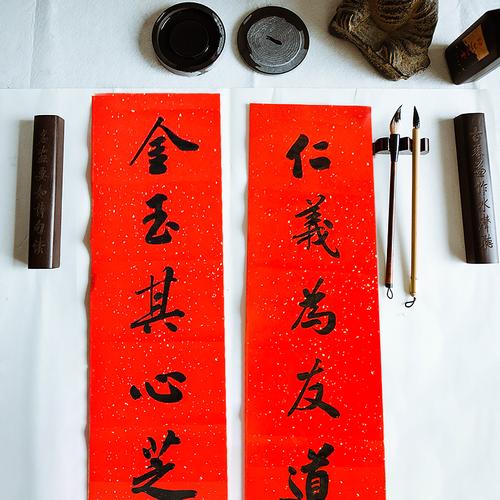 仁義為友道
金玉其心芝